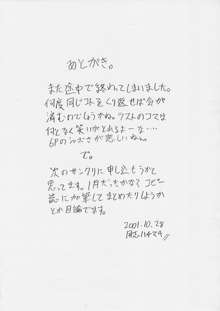 あとがき。
また途中で終わってしまいました。
何度同じコトをくり返せば気が
済むのでしょうかね。ラストのコマは
何となく笑いがとれるよーな…
6Pのシュさが悲しいね。
で。
次のサンクリに申し込もうかと
思ってます。1月だったかな？コピー
誌に加筆してまとめたりしようか
とか目論でます。
2001.10.28